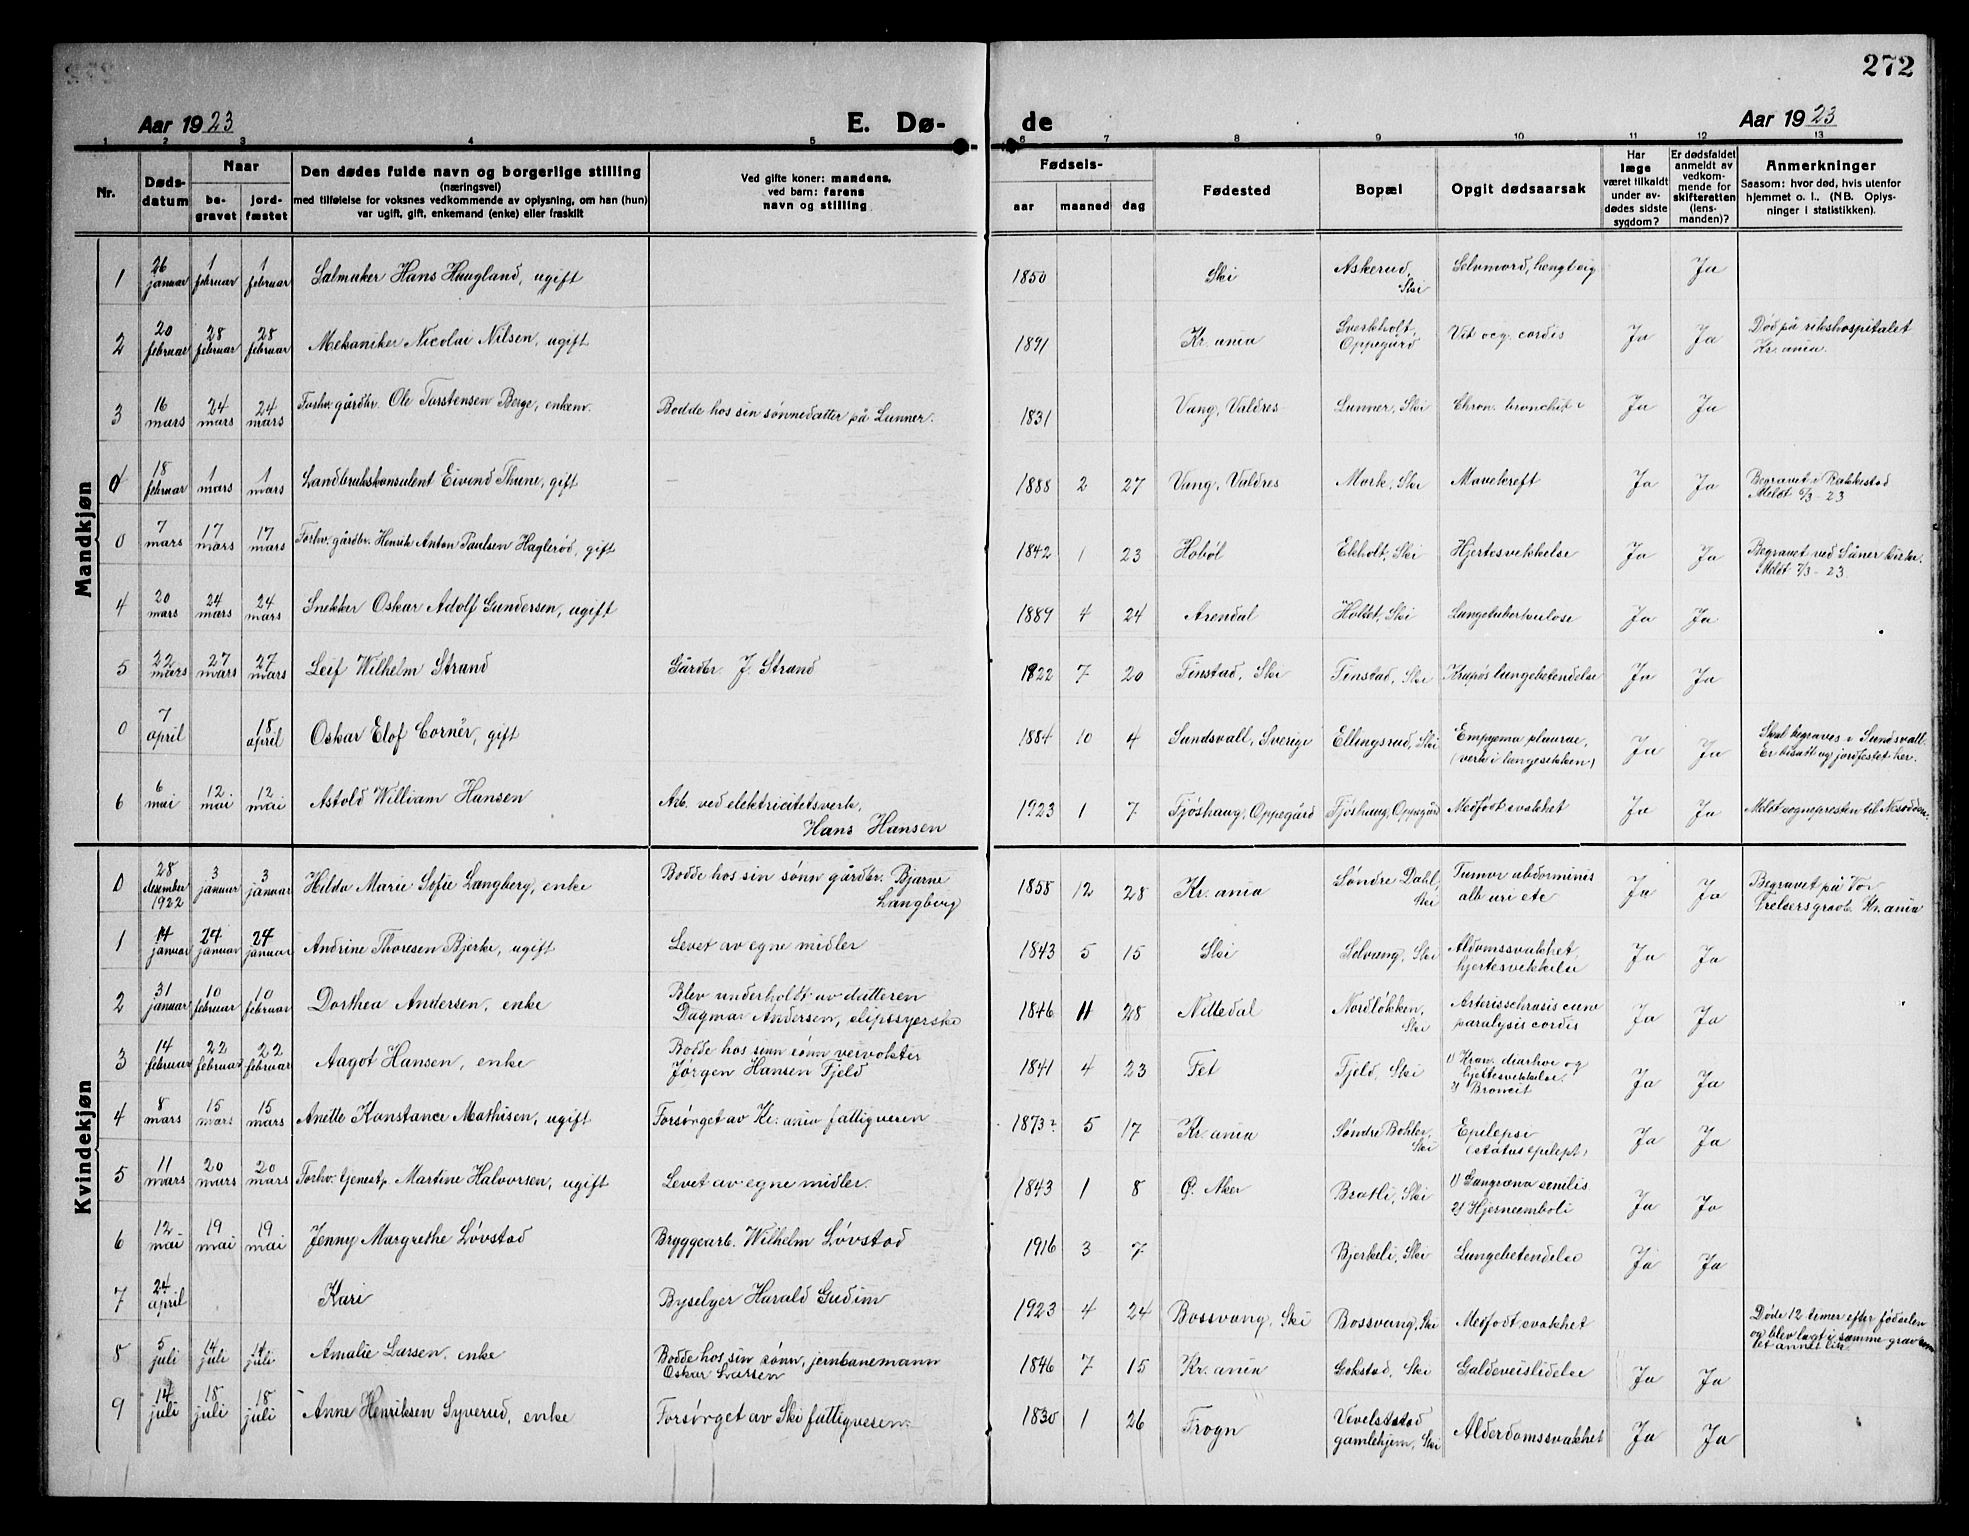 272
Aar 1923
E. Dø-
de
Aar 1923
1 2 3 4 5 6 7 8 9 10 11 12 13
Nr.
Døds-
datum
Naar
be-
gravet
jord-
fæstet
Den dødes fulde navn og borgerlige stilling
(næringsvei)
med tilføielse for voksnes vedkommende av oplysning, om han (hun)
var ugift, gift, enkemand (enke) eller fraskilt
Ved gifte koner: mandens,
ved barn: farens
navn og stilling
Fødsels-
aar
maaned
dag
Fødested
Bopæl
Opgit dødsaarsak
Har
læge
været tilkaldt
under av-
dødes sidste
sygdom?
Er dødsfaldet
anmeldt av
vedkom-
mende for
skifteretten
(lens-
manden)?
Anmerkninger
Saasom: hvor død, hvis utenfor
hjemmet o. l.. (NB. Oplys-
ninger i statistikken).
Mandkjøn
1 26 januar 1 februar 1 februar Salmaker Hans Haugland, ugift 1850 Ski Askerud, Ski Selvmord, hengt sig Ja
2 20 februar 28 februar 28 februar Mekaniker Nicolai Nilsen, ugift 1891 Kr.ania Sverkholt, Oppegård Vit. og cordis Ja Ja Død på rikshospitalet Kr.ania.
3 16 mars 24 mars 24 mars Forhv. gårdbr. Ole Torstensen Berge, enkem. Bodde hos sin sønnedatter på Lunner. 1831 Vang, Valdres Lunner, Ski Chron. bronchit Ja Ja
0 18 februar 1 mars 1 mars Landbrukskonsulent Eivind Thune, gift 1888 2 27 Vang, Valdres Mork, Ski Mavekreft Ja Ja Begravet i Rakkestad Meldt 6/3-23
0 7 mars 17 mars 17 mars Forhv. gårdbr. Henrik Anton Paulsen Haglerød, gift 1842 1 23 Hobøl Ekholt, Ski Hjertesvekkelse Ja Ja Begravet ved Såner kirke. Meldt 7/3-23
4 20 mars 24 mars 24 mars Snekker Oskar Adolf Gundersen, ugift 1889 4 24 Arendal Holtet, Ski Lungetuberkulose Ja Ja
5 22 mars 27 mars 27 mars Leif Wilhelm Strand Gårdbr. J. Strand 1922 7 20 Finstad, Ski Finstad, Ski Krupøs lungebetendelse Ja Ja
0 7 april 18 april Oskar Elof Cornér, gift 1884 10 4 Sundsvall, Sverige Ellingsrud, Ski Empyema plaurae, (verk i lungesekken) Ja Ja Skal begraves i Sundsvall. Er bisatt og jordfestet her.
6 6 mai 12 mai 12 mai Astold William Hansen Arb. ved elektricitetsverk, Hans Hansen 1923 1 7 Fjøshaug, Oppegård Fjøshaug, Oppegård Medfødt svakhet Ja Ja Meldt sognepresten til Nesodden.
Kvindekjøn
0 28 desember 1922 3 januar 3 januar Hilda Marie Sofie Langberg, enke Bodde hos sin sønn gårdbr. Bjarne Langberg 1858 12 28 Kr.ania Søndre Dahl, Ski Tumor abdominis alb uri ete Ja Ja Begravet på Vor Frelsers gravl. Kr.ania
1 14 januar 24 januar 24 januar Andrine Thoresen Bjerke, ugift Levet av egne midler 1843 5 15 Ski Solvang, Ski Aldomssvakhet, hjertesvekkelse Ja Ja
2 31 januar 10 februar 10 februar Dorthea Andersen, enke Blev underholdt av datteren Dagmar Andersen, slipssyerske 1846 11 28 Nittedal Nordløkken, Ski paralysis cordis Ja Ja
3 14 februar 22 februar 22 februar Aagot Hansen, enke Bodde hos sinn sønn vervokter Jørgen Hansen Fjeld 1841 4 23 Fet Fjeld, Ski 1) Kron. diarhoe og hjertesvekkelse. 2) Broncit Ja Ja
4 8 mars 15 mars 15 mars Anette Konstance Mathisen, ugift Forsørget av Kr.ania fattigvesen 1873? 5 17 Kr.ania Søndre Bohler, Ski Epilepsi (status epilept) Ja Ja
5 11 mars 20 mars 20 mars Forhv. tjenestp. Martine Halvorsen, ugift Levet av egne midler. 1843 1 8 Ø. Aker Bratli, Ski 1) Gangræna senilis 2) Hjerneemboli Ja Ja
6 12 mai 19 mai 19 mai Jenny Margrethe Løvstad Bryggearb. Wilhelm Løvstad 1916 3 7 Bjerkeli, Ski Lungebetendelse Ja Ja
7 24 april Kari Byselger Harald Gudim 1923 4 24 Bossvang, Ski Bossvang, Ski Medfødt svakhet Døde 12 timer efter fødselen og blev lagt i samme grav som et annet lik
8 5 juli 14 juli 14 juli Amalie Larsen, enke Bodde hos sin sønn, jernbanemann Oskar Larsen 1846 7 15 Kr.ania Gokstad, Ski Galdeveislidelse Ja Ja
9 14 juli 18 juli 18 juli Anne Henriksen Syverud, enke Forsørget av Ski fattigvesen 1830 1 26 Frogn Vevelstad gamlehjem, Ski Alderdomssvakhet Ja Ja